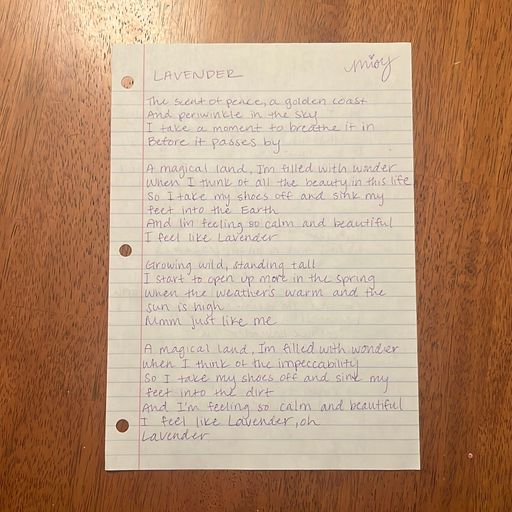 LAVENDER
mioy
The scent of peace, a golden coast
And periwinkle in the sky
I take a moment to breathe it in
Before it passes by
A magical land, I'm filled with wonder
When I think of all the beauty in this life
So I take my shoes off and sink my
feet into the Earth
And I'm feeling so calm and beautiful
I feel like Lavender
Growing wild, standing tall
I start to open up more in the spring
When the weather's warm and the
sun is high
Mmm just like me
A magical land, I'm filled with wonder
When I think of the impeccability
So I take my shoes off and sink my
feet into the dirt
And I'm feeling so calm and beautiful
I feel like Lavender, oh
Lavender